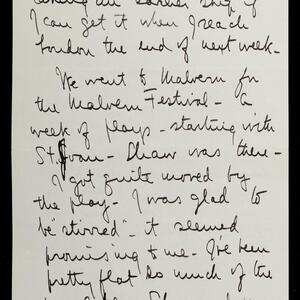 an earlier ship if
I can get it when I reach
London the end of next week -
We went to Malvern for
the Malvern Festival - a
week of plays - starting with
St. Joan - Shaw was there -
I got quite moved by
the play - I was glad to
be "stirred" - it seemed
promising to me - I've been
pretty flat so much of the